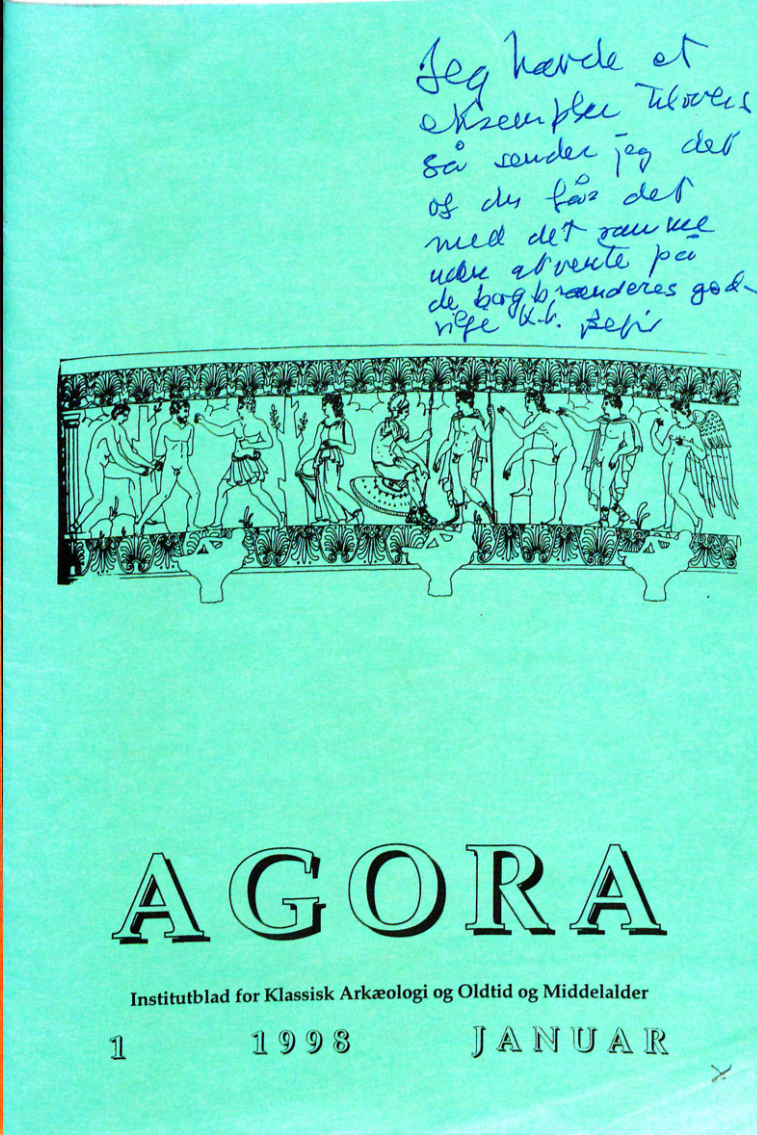 Jeg havde et
eksemplar tilovers
så sender jeg det
og du får det
med det samme
uden at vente på
de bogbrænderes god-
vilje k.h.
AGORA
Institutblad for Klassisk Arkæologi og Oldtid og Middelalder
1 1998 JANUAR